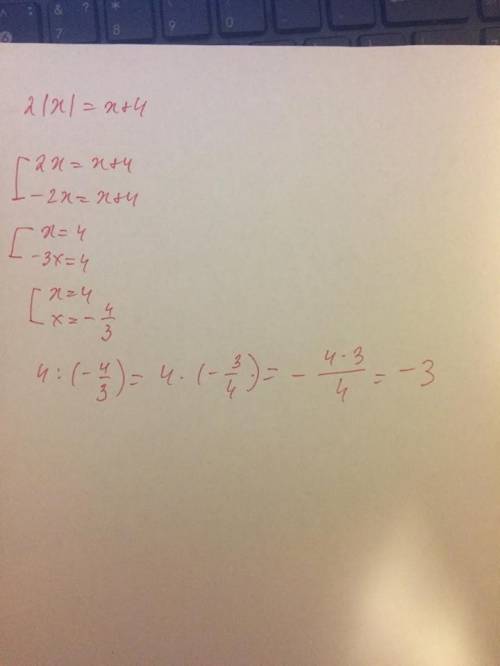 ^ : & ? * ( )
6 7 8 9 0
2|x| = x+4
[ 2x = x+4
-2x = x+4
[ x = 4
-3x = 4
[ x = 4
x = -4/3
4 : (-4/3) = 4 · (-3/4) = - 4·3/4 = -3